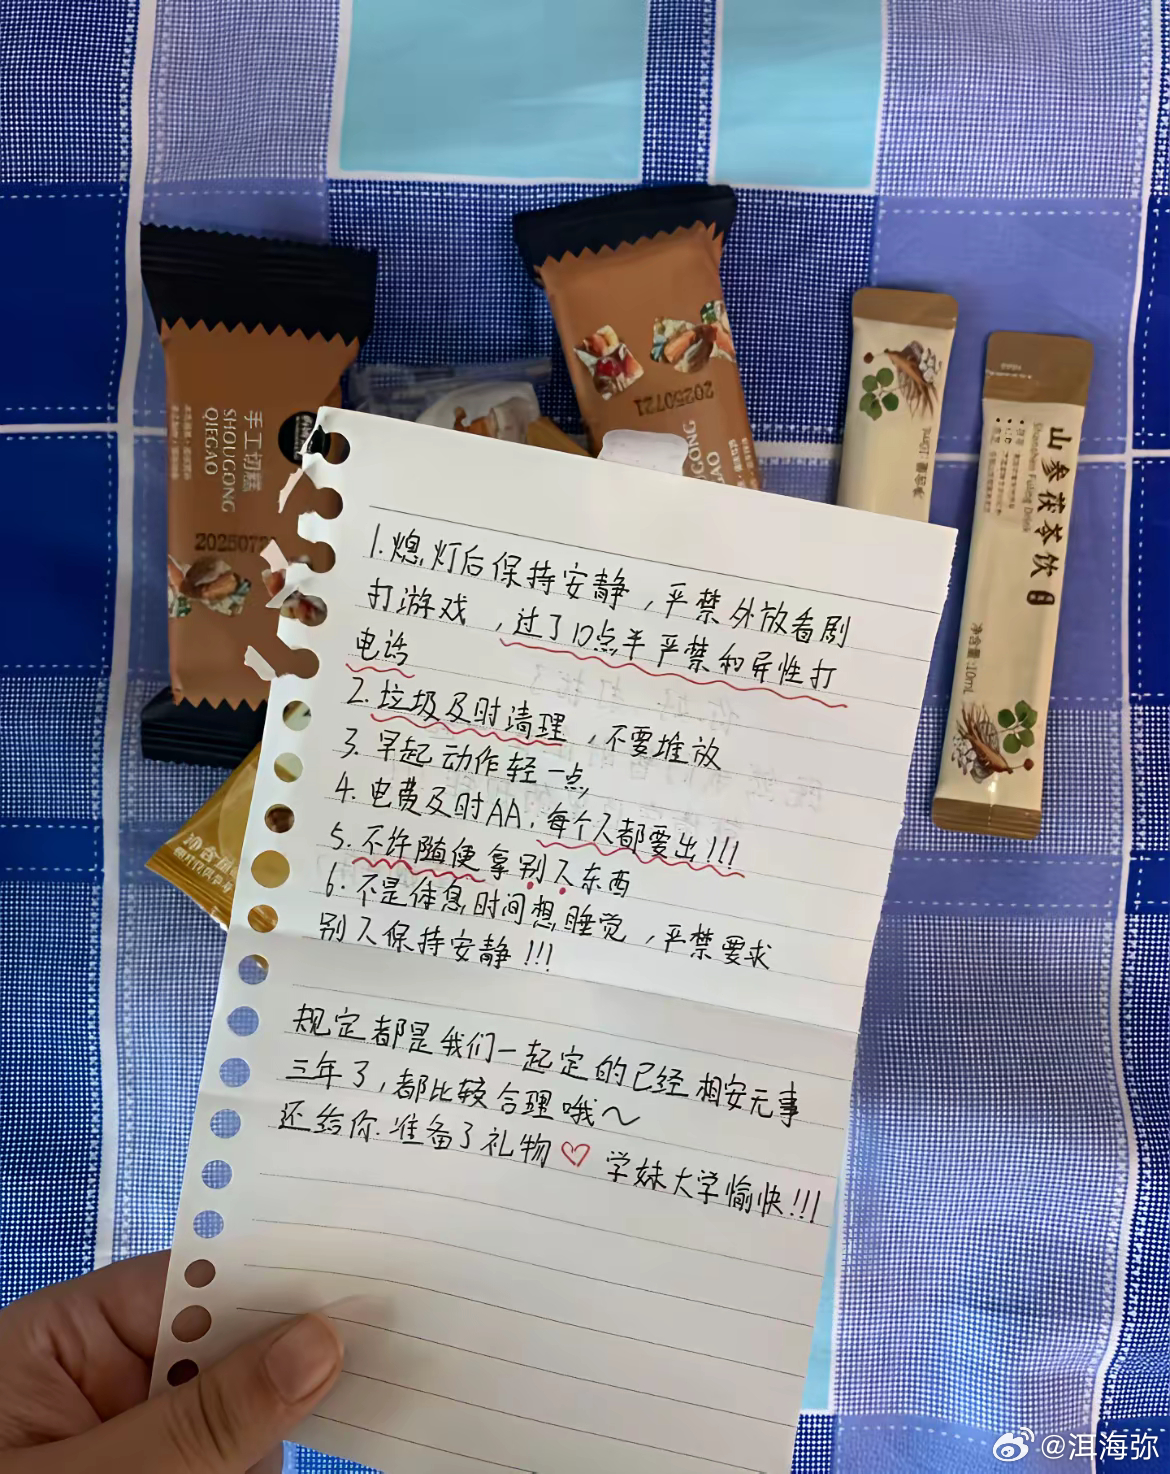 手工切糕
SHOUGONG
QIEGAO
20250721
20250721
GONG
GAO
净含量:10mL
山参茯苓饮
Shanshen Fuling Drink
净含量:10mL
净含量
1.熄灯后保持安静,严禁外放看剧
打游戏,过了10点半严禁和异性打
电话
2.垃圾及时清理,不要堆放
3.早起动作轻一点
4.电费及时AA,每个人都要出!!!
5.不许随便拿别人东西
6.不是休息时间想睡觉,严禁要求
别人保持安静!!!
规定都是我们一起定的已经相安无事
三年了,都比较合理哦~
还给你准备了礼物♡ 学妹大学愉快!!!
@洱海弥